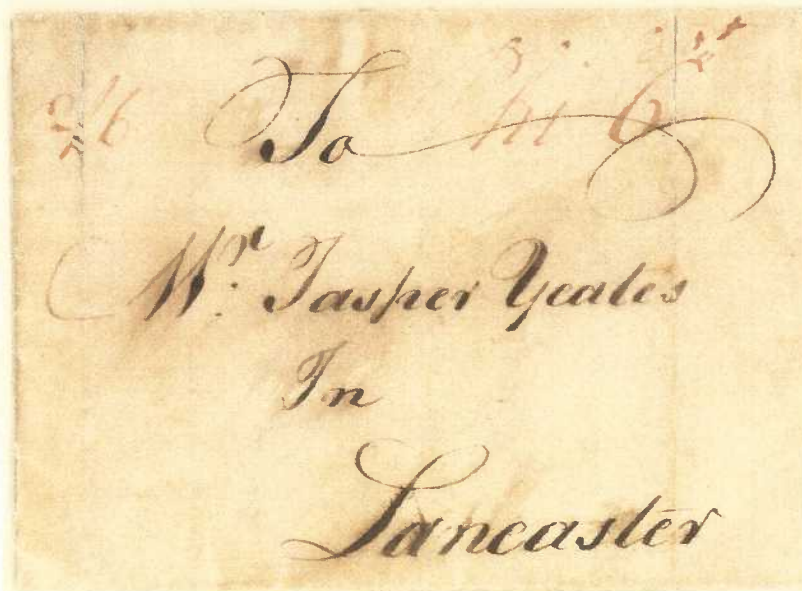 To
Mr. Jasper Yeates
In
Lancaster